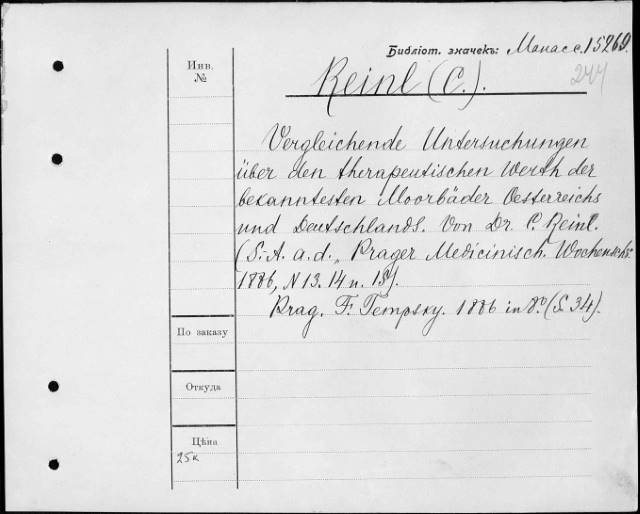 Библіот. значекъ: Манасс. 15260.
244
Инв.
№
Reinl (C.).
Vergleichende Untersuchungen
über den therapeutischen Werth der
bekanntesten Moorbäder Oesterreichs
und Deutschlands. Von Dr. C. Reinl.
(S.-A. a. d. „Prager Medicinisch. Wochenschr.
1886, N 13. 14 u. 15).
Prag. F. Tempsky. 1886 in 8.º (S. 34).
По заказу
Откуда
Цѣна
25к